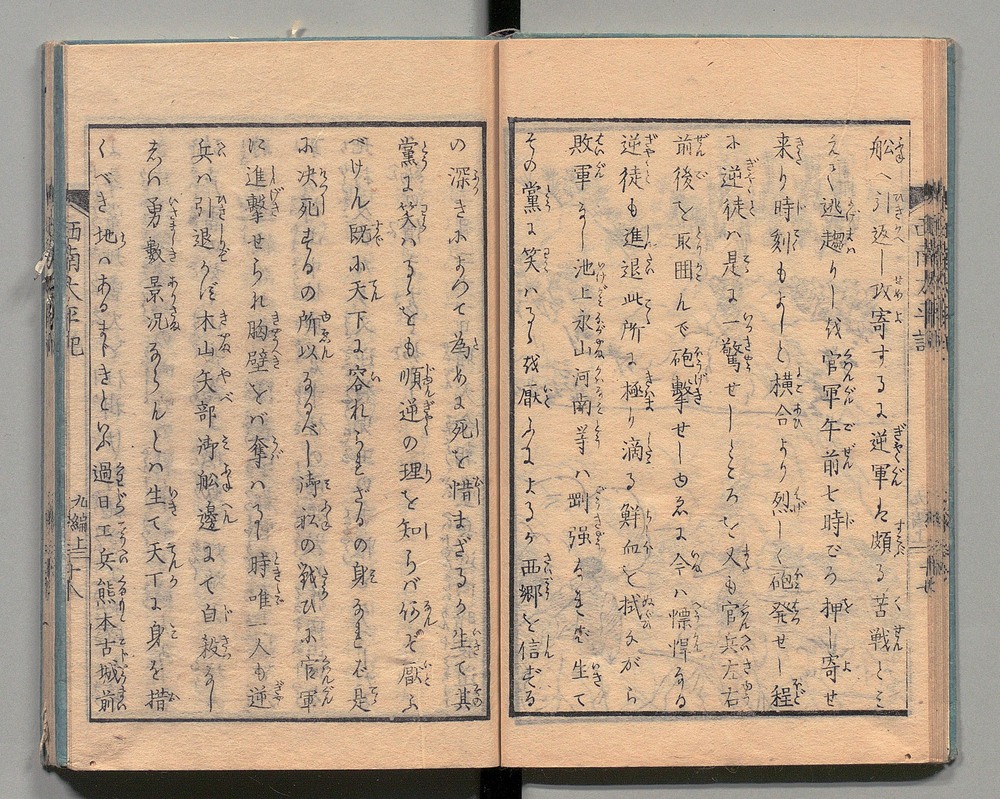 船へ引返し攻寄するに逆軍は頗る苦戦とミ
えて逃趨りし我官軍午前七時ごろ押し寄せ
来り時刻もよしと横合より烈しく砲発せし程
に逆徒ハ是に一驚せしところを又も官兵左右
前後を取囲んで砲撃せしゆゑに今ハ慓悍なる
逆徒も進退此所に極り滴る鮮血を拭ながら
敗軍なし池上永山河南等ハ剛強なれ共生て
その党に笑ハるゝを厭ふによるか西郷を信ずる
の深きによつて為めに死を惜まざるか生て其
党に笑ハるゝとも順逆の理を知らバ何ぞ厭ふ
べけん既に天下に容れられざるの身なれバ是
に决死するの所以なるべし御船の戦ひに官軍
に進撃せられ胸壁をバ奪ハるゝ時唯一人も逆
兵ハ引退かず木山矢部御船邊にて自殺なし
たるハ勇敷景况ならんとハ生て天下に身を措
くべき地ハあるまじきといふ過日工兵熊本古城前
西南太平記
九編上
十八